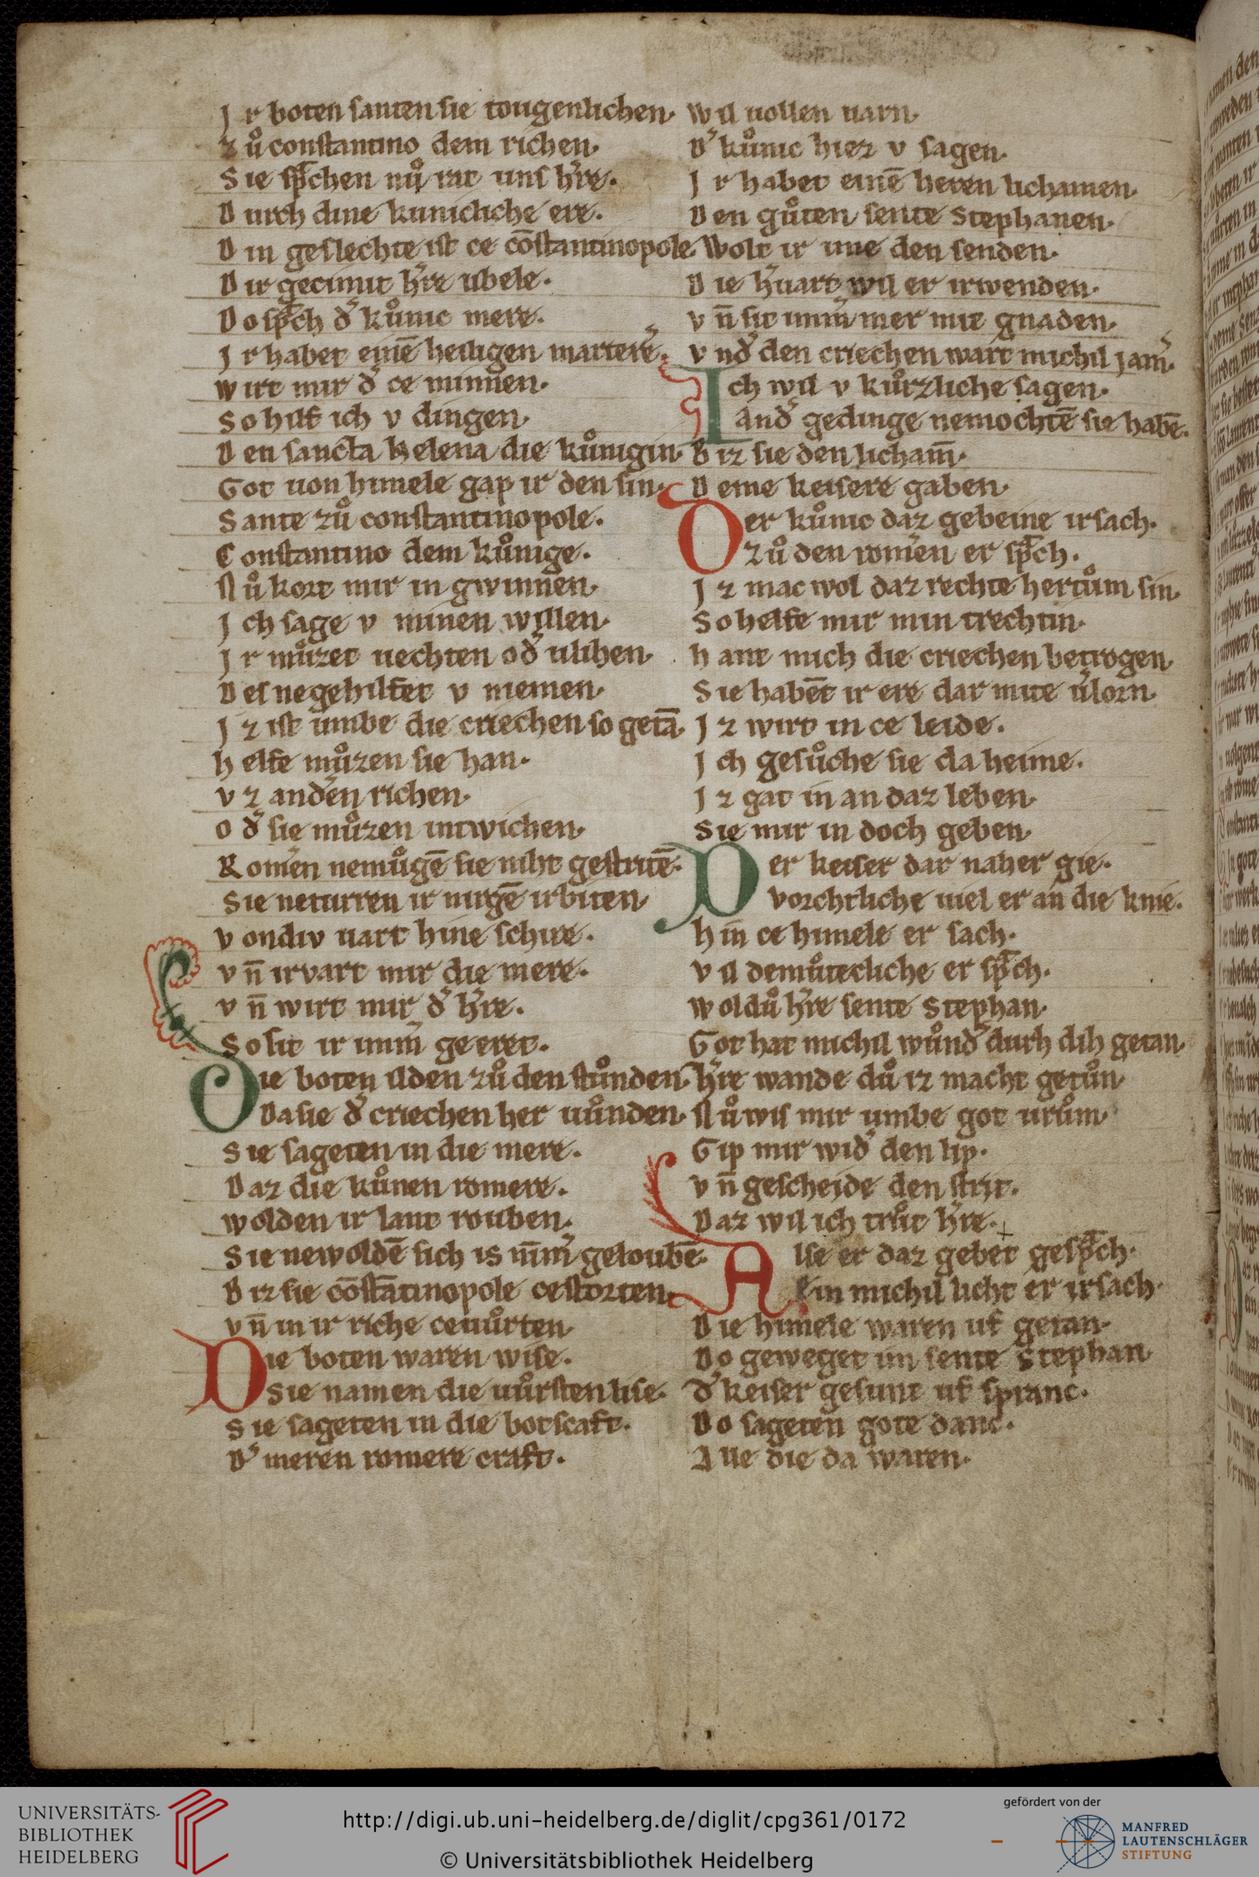 J r boten santen sie tougenlichen.
z uͦ constantino dem richen.
S ie sp̄chen nuͦ rat uns h̓re.
D urch dine kunicliche ere.
D in geslechte ist ce cōstantinopole.
D ir gecimit h̓re ubele.
D o sp̄ch d̓ kuͦnic mere.
J r habet einē heiligen martere.
w irt mir d̓ ce minnen.
S o hilf ich v dingen.
D en sancta helena die kuͦnigin.
G ot uon himele gap ir den sin.
S ante zuͦ constantinopole.
C onstantino dem kuͦnige.
N uͦ kort mir in gwinnen.
J ch sage v minen willen.
J r muͦzet uechten od̓ ulihen.
D es negehilfet v niemen.
J z ist umbe die criechen so getā.
h elfe muͦzen sie han.
v z and̓en richen.
o d̓ sie muͦzen intwichen.
R om̓en nemuͦgē sie niht gestritē.
S ie neturren ir nirgē irbiten.
v on div uart hine schire.
v n̄ irvart mir die mere.
v n̄ wirt mir d̓ h̓re.
S o sit ir imm̓ geeret.
D ie boten ilden zuͦ den stuͦnden.
D a sie d̓ criechen her uuͦnden.
S ie sageten in die mere.
D az die kuͦnen romere.
w olden ir lant rouben.
S ie newoldē sich is nīm̓ geloubē.
D iz sie cōstātinopole cestorten.
v n̄ in ir riche cevuͦrten.
D ie boten waren wise.
S ie namen die uuͦrsten lise.
S ie sageten in die botscaft.
D̓ meren romere craft.
w il uollen uarn.
D̓ kuͦnic hiez v sagen.
J r habet einē heren lichamen.
D en guͦten sente Stephanen.
w olt ir ime den senden.
D ie h̓uart wil er irwenden.
v n̄ sit imm̓mer mit gnaden.
v nd̓ den criechen wart michil jam̓.
J ch wil v kuͦrzliche sagen.
A nd̓ gedinge nemochtē sie habē.
B iz sie den licham̄.
D eme keisere gaben.
D er kuͦnic daz gebeine irsach.
Z uͦ den rom̓en er sp̄ch.
J z mac wol daz rechte hertuͦm sin.
S o helfe mir min trechtin.
h ant mich die criechen betrogen.
S ie habēt ir ere dar mite u̓lorn.
J z wirt in ce leide.
J ch gesuͦche sie da heime.
J z gat in an daz leben.
S ie mir in doch geben.
D er keiser dar naher gie.
v orchtliche uiel er an die knie.
h in ce himele er sach.
v il demuͦtecliche er sp̄ch.
w oldaͮ h̓re sente Stephan.
G ot hat michil wuͦnd̓ durh dih getan.
h̓re wande duͦ iz macht getuͦn.
N uͦ wis mir umbe got uruͦm.
G ip mir wid̓ den lip.
v n̄ gescheide den strit.
D az wil ich truͦc h̓re.
A lse er daz gebet gesp̄ch.
E in michil licht er irsach.
D ie himele waren uf getan.
D o geweget im sente Stephan
d̓ keiser gesunt uf spranc.
D o sageten gote danc.
A lle die da waren.
UNIVERSITÄTS-
BIBLIOTHEK
HEIDELBERG
http://digi.ub.uni-heidelberg.de/diglit/cpg361/0172
© Universitätsbibliothek Heidelberg
gefördert von der
MANFRED
LAUTENSCHLÄGER
STIFTUNG